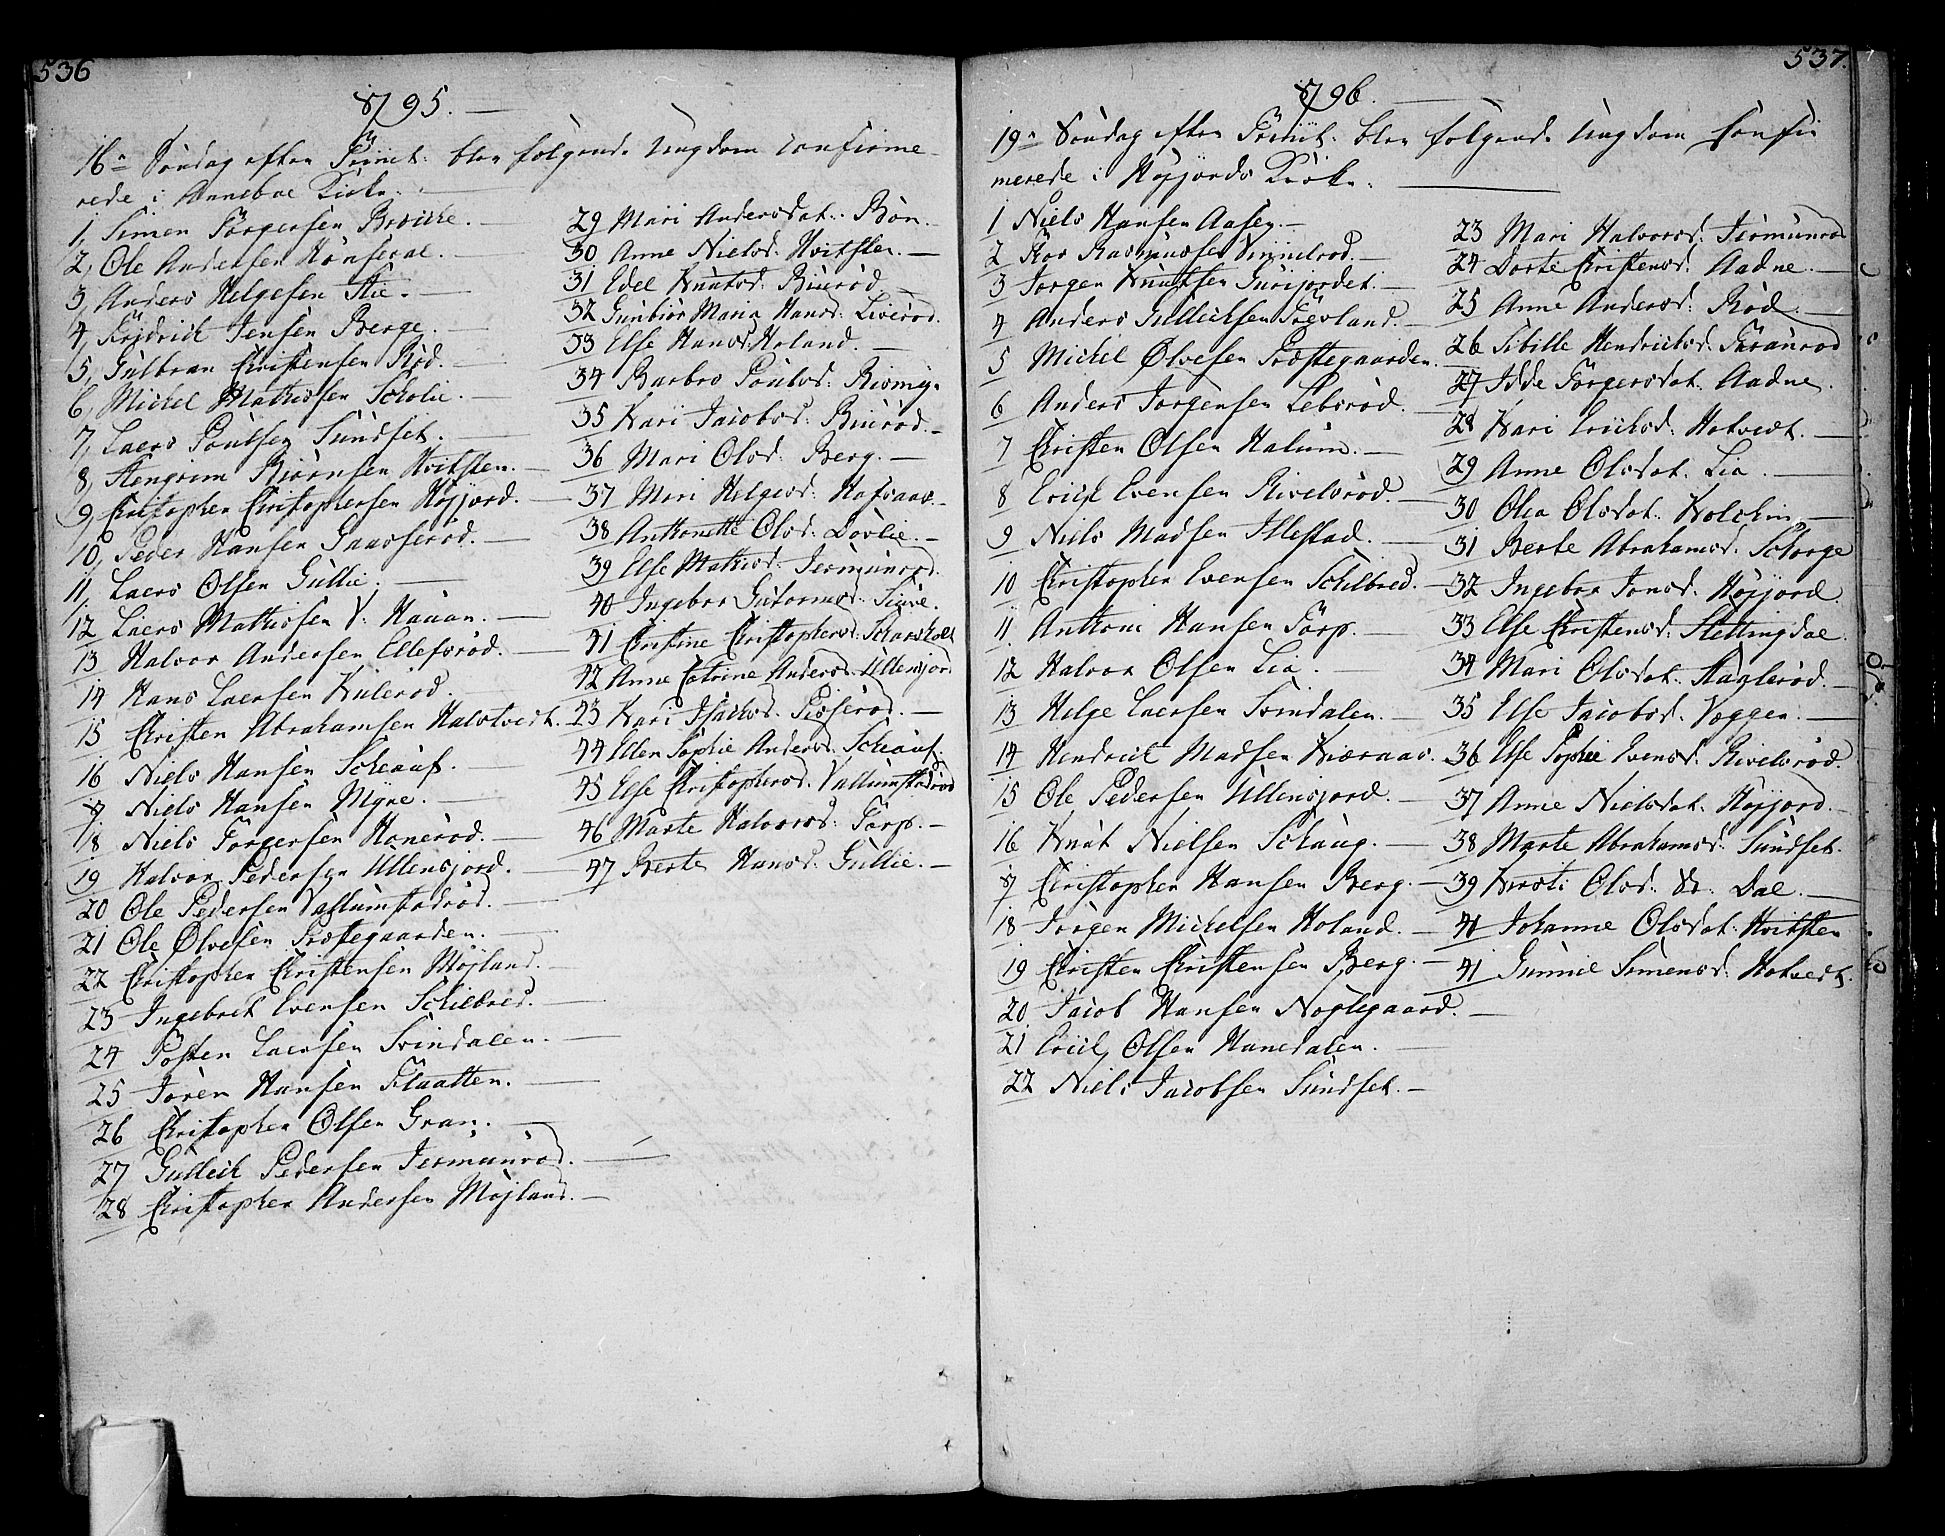 536
1795.
16de Søndag efter Trinit: blev følgende Ungdom confirme-
rede i Anneboe Kirke.
1, Simen Torgersen Broche.
2, Ole Andersen Hønseroe.
3, Anders Helgesen Stie.
4, Fridrich Jensen Berge.
5, Gulbran Christensen Rød.
6, Michel Mathisen Scholie.
7, Laers Poulsen Sundset.
8, Stengrim Biørnsen Hvitsten.
9, Christopher Christophersen Høyjord.
10, Peder Hansen Gaasserød.
11, Laers Olsen Gullie.
12 Laers Mathisen V: Hauan.
13 Halvor Andersen Ellefsrød.
14 Hans Laersen Kulerød.
15 Christen Abrahamsen Halvtvedt.
16 Niels Hansen Scheauf.
17 Niels Hansen Myre.
18 Niels Torgersen Hanerød.
19 Halvor Pedersen Ullensjord.
20 Ole Pedersen Vallumstadrød.
21 Ole Ølvesen Præstegaarden.
22 Christopher Christensen Møjland.
23 Ingebret Evensen Schilbred.
24 Tosten Laersen Svindalen.
25 Joren Hansen Flaatten.
26 Christopher Olsen Gran.
27 Gullich Pedersen Jermunrød.
28 Christopher Andersen Møjland.
29 Mari Andersdat: Bøn.
30 Anne Nielsd: Hvitsten.
31 Edel Knutsd: Biurød.
32 Gunbior Maria Hansd: Liverød.
33 Else Hansd: Holand.
34 Barbro Poulsd: Rismyr
35 Kari Jacobsd: Biurød.
36 Mari Olsd: Berg.
37 Mari Helgesd: Hafsaas.
38 Anthonette Olsd: Løvlie.
39 Else Mathisd: Jermunrød.
40 Ingebor Gutormsd: Tuve.
41 Christine Christophersd: Scharsholt
42 Anne Catrine Andersd: Ullensjord
43 Kari Isachsd: Pisserød.
44 Ellen Sophie Andersd: Scheauf.
45 Else Christophersd: Vallumstadrød
46 Marte Halvorsd: Torp.
47 Berte Hansd: Gullie.
537.
1796.
19de Søndag efter Trinit: blev følgende Ungdom confir
merede i Høyjords Kirke.
1 Niels Hansen Aasen.
2 Roar Rasmussen Vinnelrød.
3 Jorgen Knutsen Gurijordet.
4 Anders Gullichsen Trevland.
5 Michel Ølvesen Præstegaarden.
6 Anders Jorgensen Lebsrød.
7 Christen Olsen Halum.
8 Erich Evensen Rivelsrød.
9 Niels Madsen Illestad.
10 Christopher Evensen Schilbred.
11 Anthoni Hansen Torp.
12 Halvor Olsen Lia.
13 Helge Laersen Svindalen.
14 Hendrich Madsen Kieraas.
15 Ole Pedersen Ullensjord.
16 Knut Nielsen Schaug.
17 Christopher Hansen Berg.
18 Jørgen Michelsen Holand.
19 Christen Christensen Berg.
20 Jacob Hansen Noglegaard.
21 Erich Olsen Hanedalen.
22 Niels Jacobsen Sundset.
23 Mari Halvorsd: Jermunrød
24 Dorte Christensd: Aadne.
25 Anne Andersd: Rød.
26 Sibille Hendrichsd: Faranrød
27 Idde Torgersdat: Aadne.
28 Kari Erichsd: Hotvedt.
29 Anne Olsdat: Lia
30 Olea Olsdat: Kolchin
31 Berte Abrahamsd: Schorge
32 Ingebor Jonsd: Høyjord.
33 Else Christensd: Slettingdal.
34 Mari Olsdat: Haglerød.
35 Else Jacobsd: Voggen.
36 Else Sophie Evensd: Rivelsrød.
37 Anne Nielsdat: Høyjord.
38 Marte Abrahamsd: Sundset.
39 Kirsti Olsd: Dal.
40 Johanne Olsdat: Hvitsten
41 Gunnil Simensd: Hotvedt.